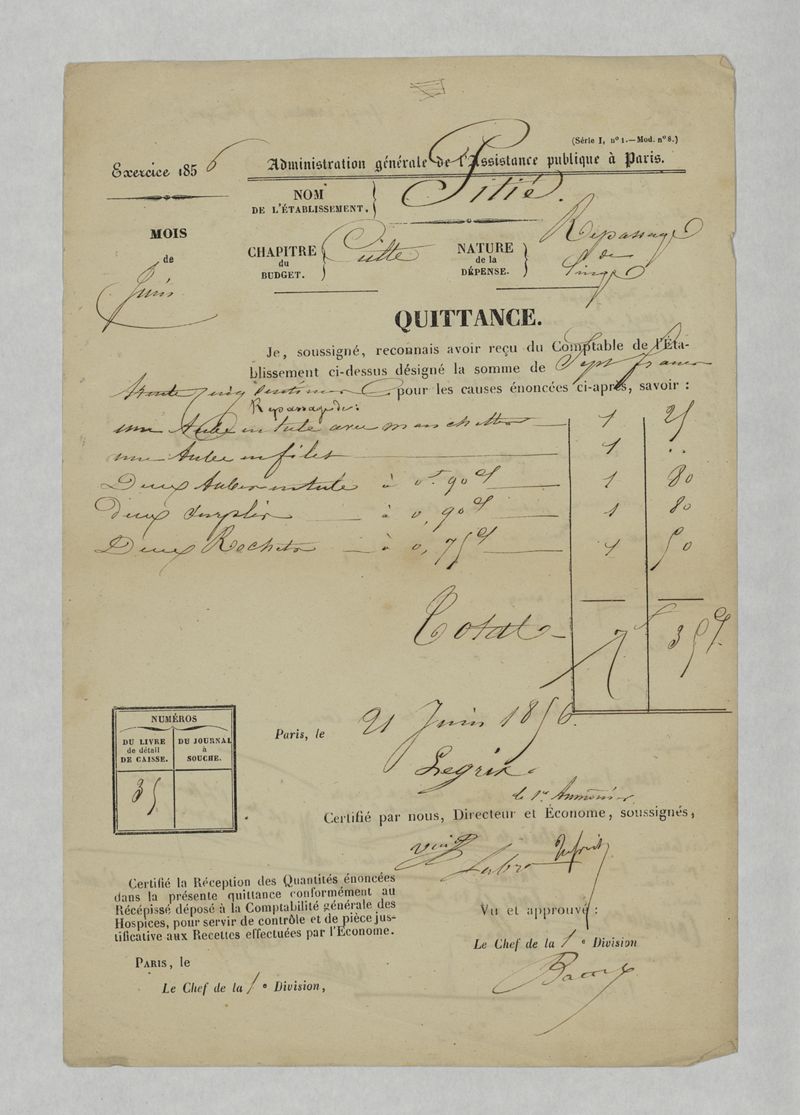 (Série I, n° 1.—Mod. n° 8.)
Exercice 1856
Administration générale de l'Assistance publique à Paris.
NOM
DE L'ÉTABLISSEMENT.
Pitié.
MOIS
de
Juin
CHAPITRE
du
BUDGET.
Culte
NATURE
de la
DÉPENSE.
Repassage
de
Linge
QUITTANCE.
Je, soussigné, reconnais avoir reçu du Comptable de l'Éta-
blissement ci-dessus désigné la somme de Sept francs
trente cinq centimes pour les causes énoncées ci-après, savoir :
Repassage de:
une Aube en tulle avec manchettes 1 25
une Aube en filet 1 ..
Deux Aubes en tulle à 0f 90c 1 80
deux surplis à 0, 90c 1 80
Deux Rochets à 0, 75c 1 50
Total 7 35c
NUMÉROS
DU LIVRE
de détail
DE CAISSE.
DU JOURNAL
à
SOUCHE.
35
Paris, le 21 Juin 1856.
Legrix
le 1er Aumônier
Certifié par nous, Directeur et Économe, soussignés,
Certifié la Réception des Quantités énoncées
dans la présente quittance conformément au
Récépissé déposé à la Comptabilité générale des
Hospices, pour servir de contrôle et de pièce jus-
tificative aux Recettes effectuées par l'Économe.
PARIS, le
Le Chef de la 1e Division,
Vu et approuvé :
Le Chef de la 1e Division